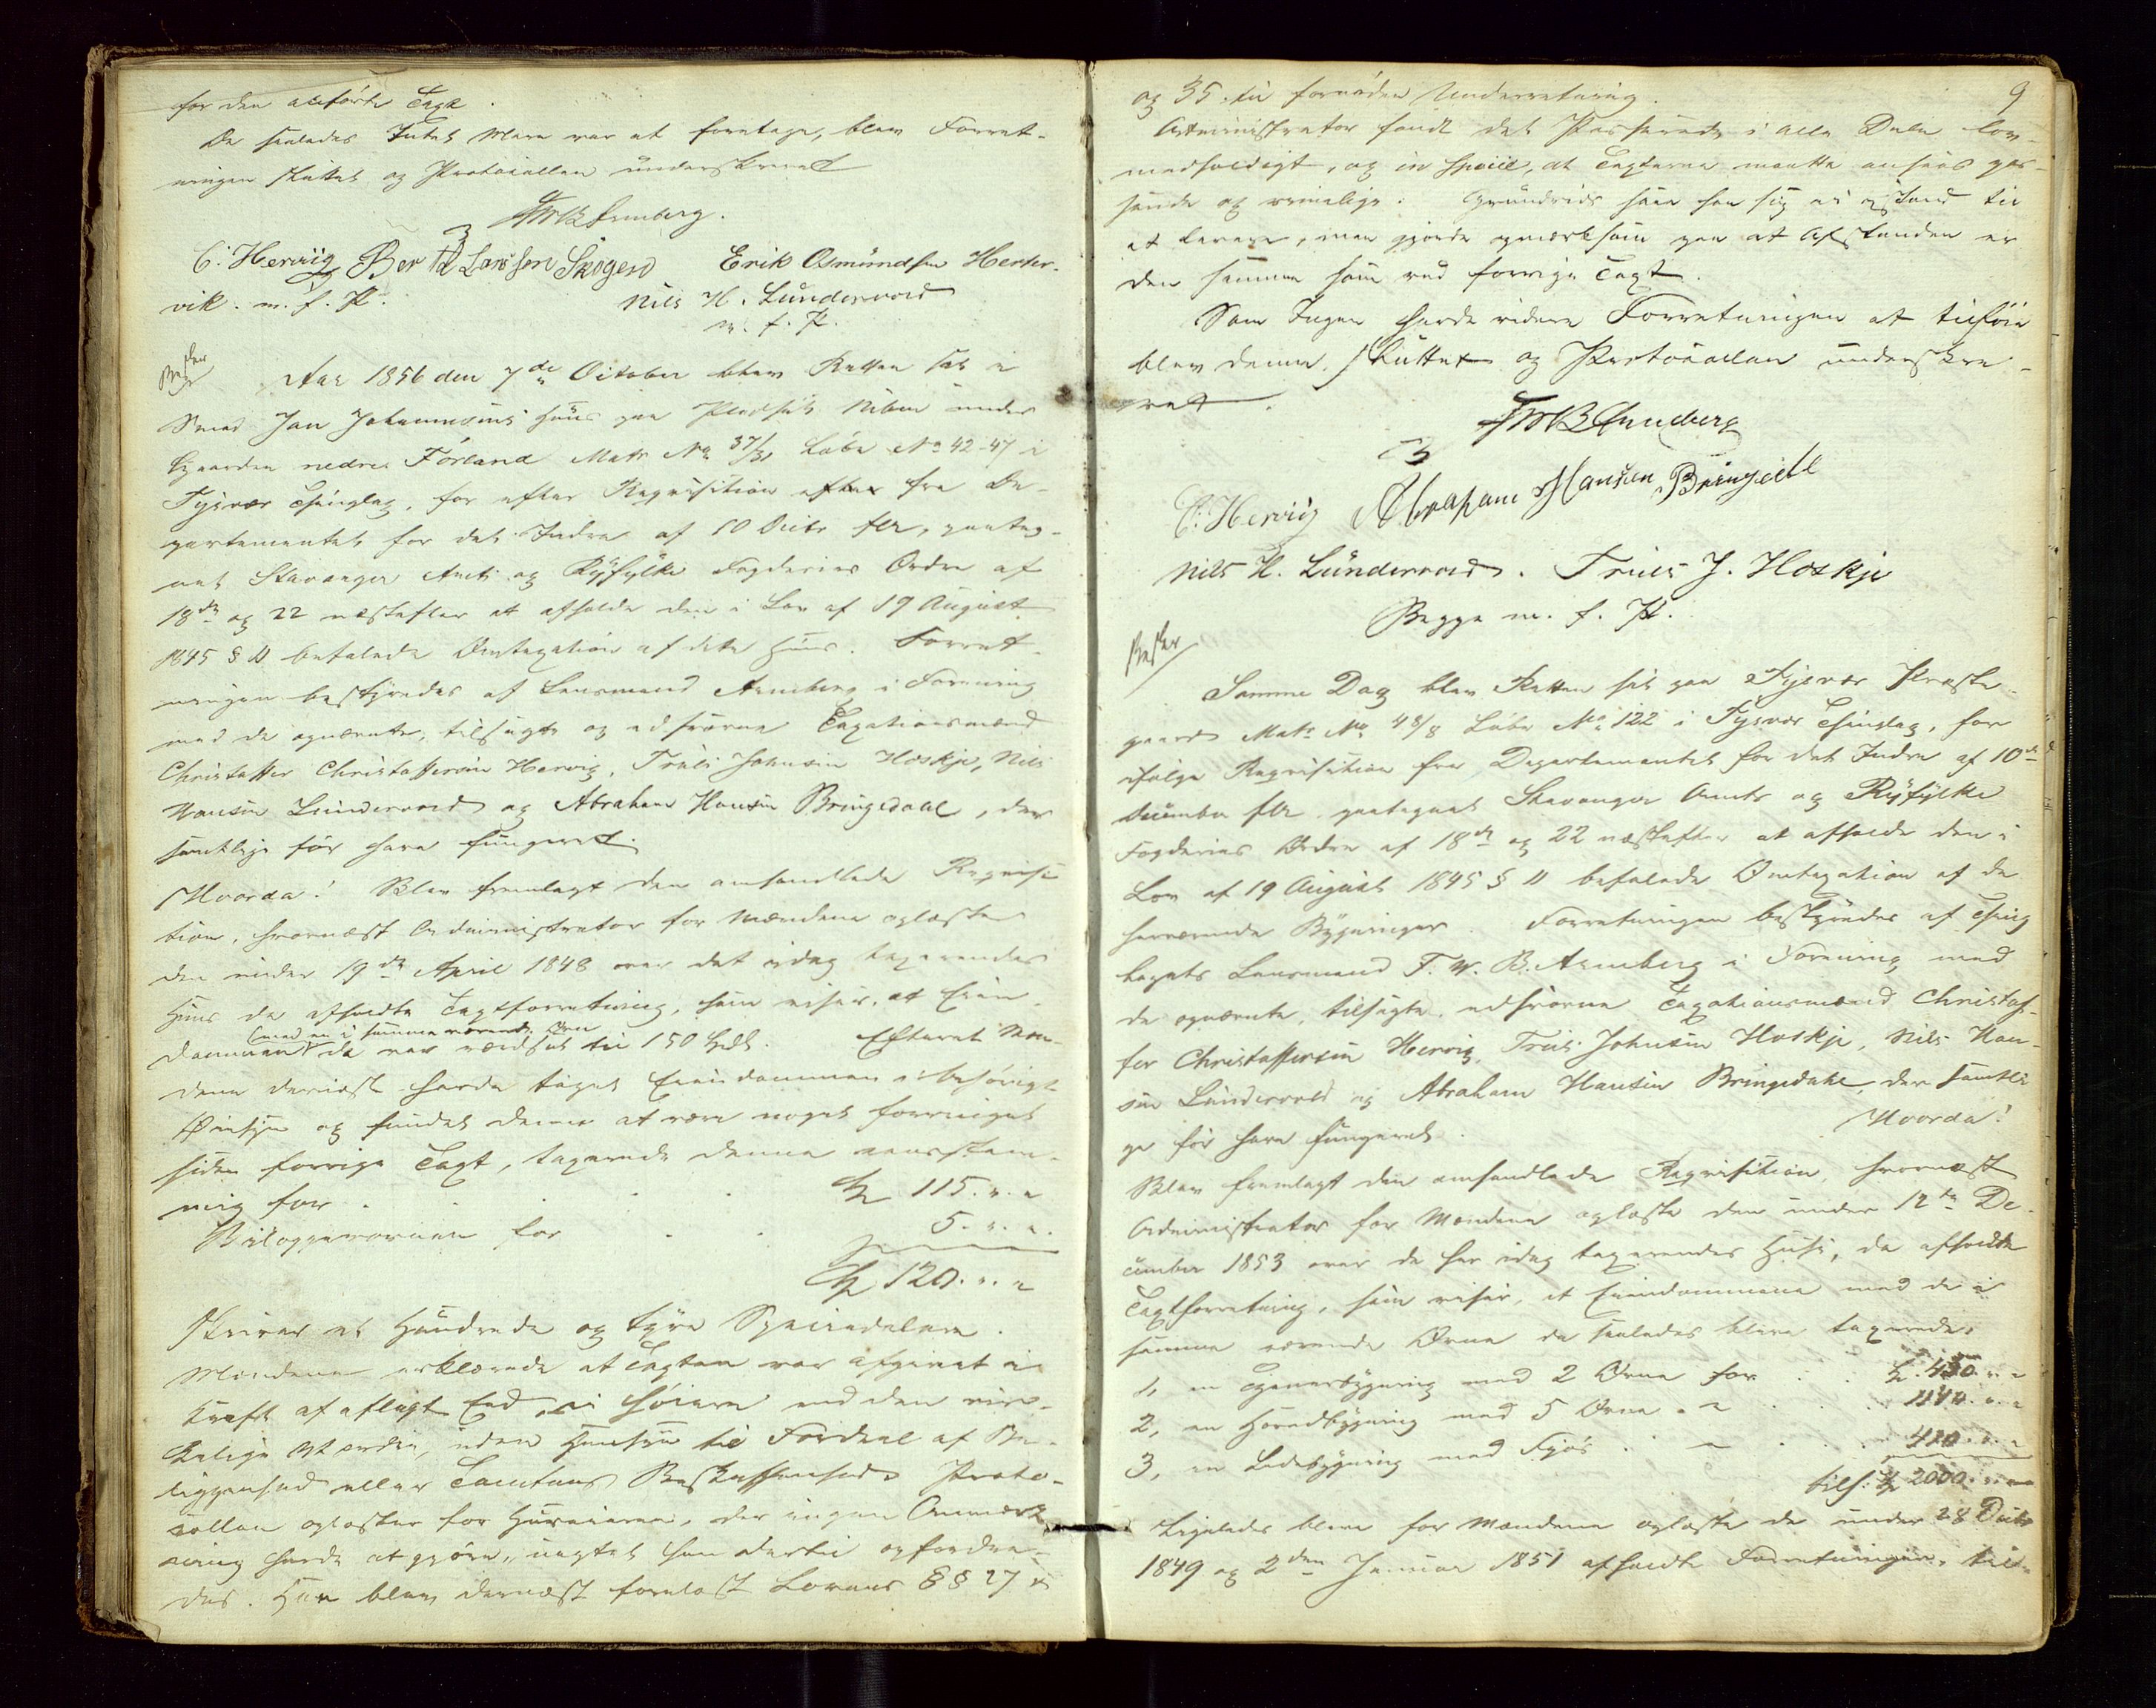 for den anførte Taxt.
Da saaledes Intet Mere var at foretage, blev Forret-
ningen sluttet og Protocollen underskrevet
FWBArnnberg.
C. Hervig Berthel Larsson Skogen Erik Osmundsen Herter-
vik. m. f. P. Nils H. Lundervold
m. f. P.
Aar 1856 den 7de October blev Retten sat i
Smed Jan Johannesens Huus paa Pladsen under
Gaarden nedre Førland Matr No 37/31 Løbe No 42-47 i
Tysvær Thinglag, for efter Requisition fra De-
partementet for det Indre af 10 Decbr f.A., paateg-
net Stavanger Amts og Ryfylke Fogderies Ordre af
18de og 22 næstefter at afholde den i Lov af 19 August
1845 § 11 befalede Omtaxation af dette Huus. Forret-
ningen bestyredes af Lensmand Arnnberg i Forening
med de opnævnte, tilsagte og edsvorne Taxationsmænd
Christoffer Christoffersen Hervig, Truls Johnsen Hoskje, Nils
Hansen Lundervold og Abraham Hansen Bringedahl, der
samtlige før have fungeret.
Hvorda! Blev fremlagt den omhandlede Requisi-
tion, hvornæst Administrator for Mændene oplæste
den under 19de April 1848 over det idag taxerendes
Huus da afholdte Taxtforretning, som viser, at Eien-
dommen (med en i samme værende Ovn) da var værdsat til 150 Spdlr. Efterat Mæn-
dene dernæst havde taget Eiendommen i behørigt
Øiesyn og fundet denne at være noget forringet
siden forrige Taxt, taxerede denne eensstem-
mig for . . . . Spd 115. " "
Bilæggerovnen for . . 5. " "
Spd 120. " "
skriver et Hundrede og tyve Speciedaler.
Mændene erklærede at Taxten var afgivet i
Kraft af aflagt Eed, ei høiere end den vir-
kelige Værdie, uden Hensyn til Fordeel af Be-
liggenhed eller Tomtens Beskaffenhed. Proto-
collen oplæstes for Huuseieren, der ingen Anmærk-
ning havde at gjøre, uagtet han dertil opfordre-
des. Han blev dernæst forelæst Lovens §§ 27 &
9
og 35, til fornøden Underretning.
Administrator fandt det Passerede i alle Dele lov-
medholdigt, og in specie, at Taxterne maatte ansees pas-
sende og rimelige. Grundrids saae han sig ei istand til
at levere, men gjorde opmærksom paa at Afstanden er
den samme som ved forrige Taxt.
Som Ingen havde videre Forretningen at tilføie
blev denne sluttet og Protocollen underskre-
vet.
FWBArnnberg
C. Hervig Abraham Hansen Bringedal
Nils H. Lundervold. Truls J. Hoskje
Begge m. f. P.
Samme Dag blev Retten sat paa Tysvær Præste-
gaard Matr No 48/8 Løbe No 122 i Tysvær Thinglag, for
ifølge Requisition fra Departementet for det Indre af 10de
December f.A. paategnet Stavanger Amts og Ryfylke
Fogderies Ordre af 18de og 22 næstefter at afholde den i
Lov af 19 August 1845 § 11 befalede Omtaxation af de
herværende Bygninger. Forretningen bestyredes af Thing-
lagets Lensmand F. W. B. Arnnberg i Forening med
de opnævnte, tilsagte, edsvorne Taxationsmænd Christof-
fer Christoffersen Hervig, Truls Johnsen Hoskje, Nils Han-
sen Lundervold og Abraham Hansen Bringedahl, der samtli-
ge før have fungeret. Hvorda!
Blev fremlagt den omhandlede Requisition, hvornæst
Administrator for Mændene oplæste den under 12te De-
cember 1853 over de her idag taxerendes Huse, da afholdte
Taxtforretning, som viser, at Eiendommene med de i
samme værende Ovne da saaledes bleve taxerede:
1, en Taarnbygning med 2 Ovne for . . Spd. 450. " "
2, en Hovedbygning med 5 Ovne " " . . 1140. " "
3, en Ladebygning med Fjøs . " . . 410. " "
tils: Spd 2000. " "
Ligeledes bleve for Mændene oplæste de under 28 Decbr
1849 og 2den Januar 1851 afholdte Forretninger, til-